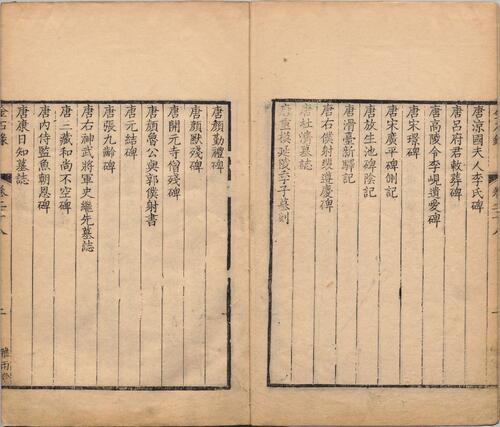 唐涼國夫人李氏碑
唐呂府君敕葬碑
唐高陵令李峴遺愛碑
唐宋璟碑
唐宋廣平碑側記
唐放生池碑陰記
唐滑臺新驛記
唐右僕射裴遵慶碑
唐杜濟墓誌
唐重摸延陵季子墓刻
唐顏勤禮碑
唐顏默殘碑
唐開元寺僧殘碑
唐顏魯公與郭僕射書
唐元結碑
唐張九齡碑
唐右神武將軍史繼先墓誌
唐三藏和尚不空碑
唐內侍監魚朝恩碑
唐康日知墓誌
金石錄 卷二十八
一
雅雨堂